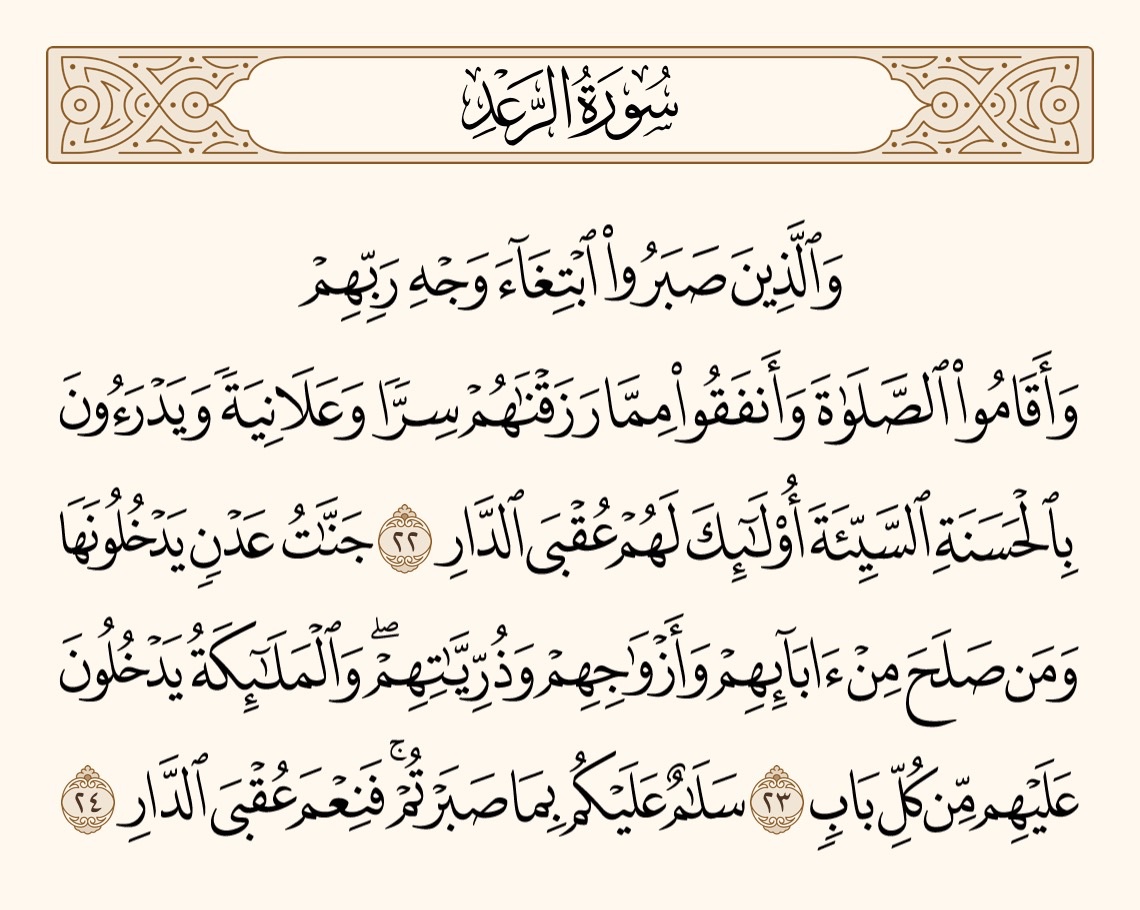 سُورَةُ الرَّعْدِ
وَٱلَّذِينَ صَبَرُوا۟ ٱبْتِغَآءَ وَجْهِ رَبِّهِمْ
وَأَقَامُوا۟ ٱلصَّلَوٰةَ وَأَنفَقُوا۟ مِمَّا رَزَقْنَٰهُمْ سِرًّا وَعَلَانِيَةً وَيَدْرَءُونَ
بِٱلْحَسَنَةِ ٱلسَّيِّئَةَ أُو۟لَٰٓئِكَ لَهُمْ عُقْبَى ٱلدَّارِ ٢٢ جَنَّٰتُ عَدْنٍ يَدْخُلُونَهَا
وَمَن صَلَحَ مِنْ ءَابَآئِهِمْ وَأَزْوَٰجِهِمْ وَذُرِّيَّٰتِهِمْ ۖ وَٱلْمَلَٰٓئِكَةُ يَدْخُلُونَ
عَلَيْهِم مِّن كُلِّ بَابٍ ٢٣ سَلَٰمٌ عَلَيْكُم بِمَا صَبَرْتُمْ ۚ فَنِعْمَ عُقْبَى ٱلدَّارِ ٢٤